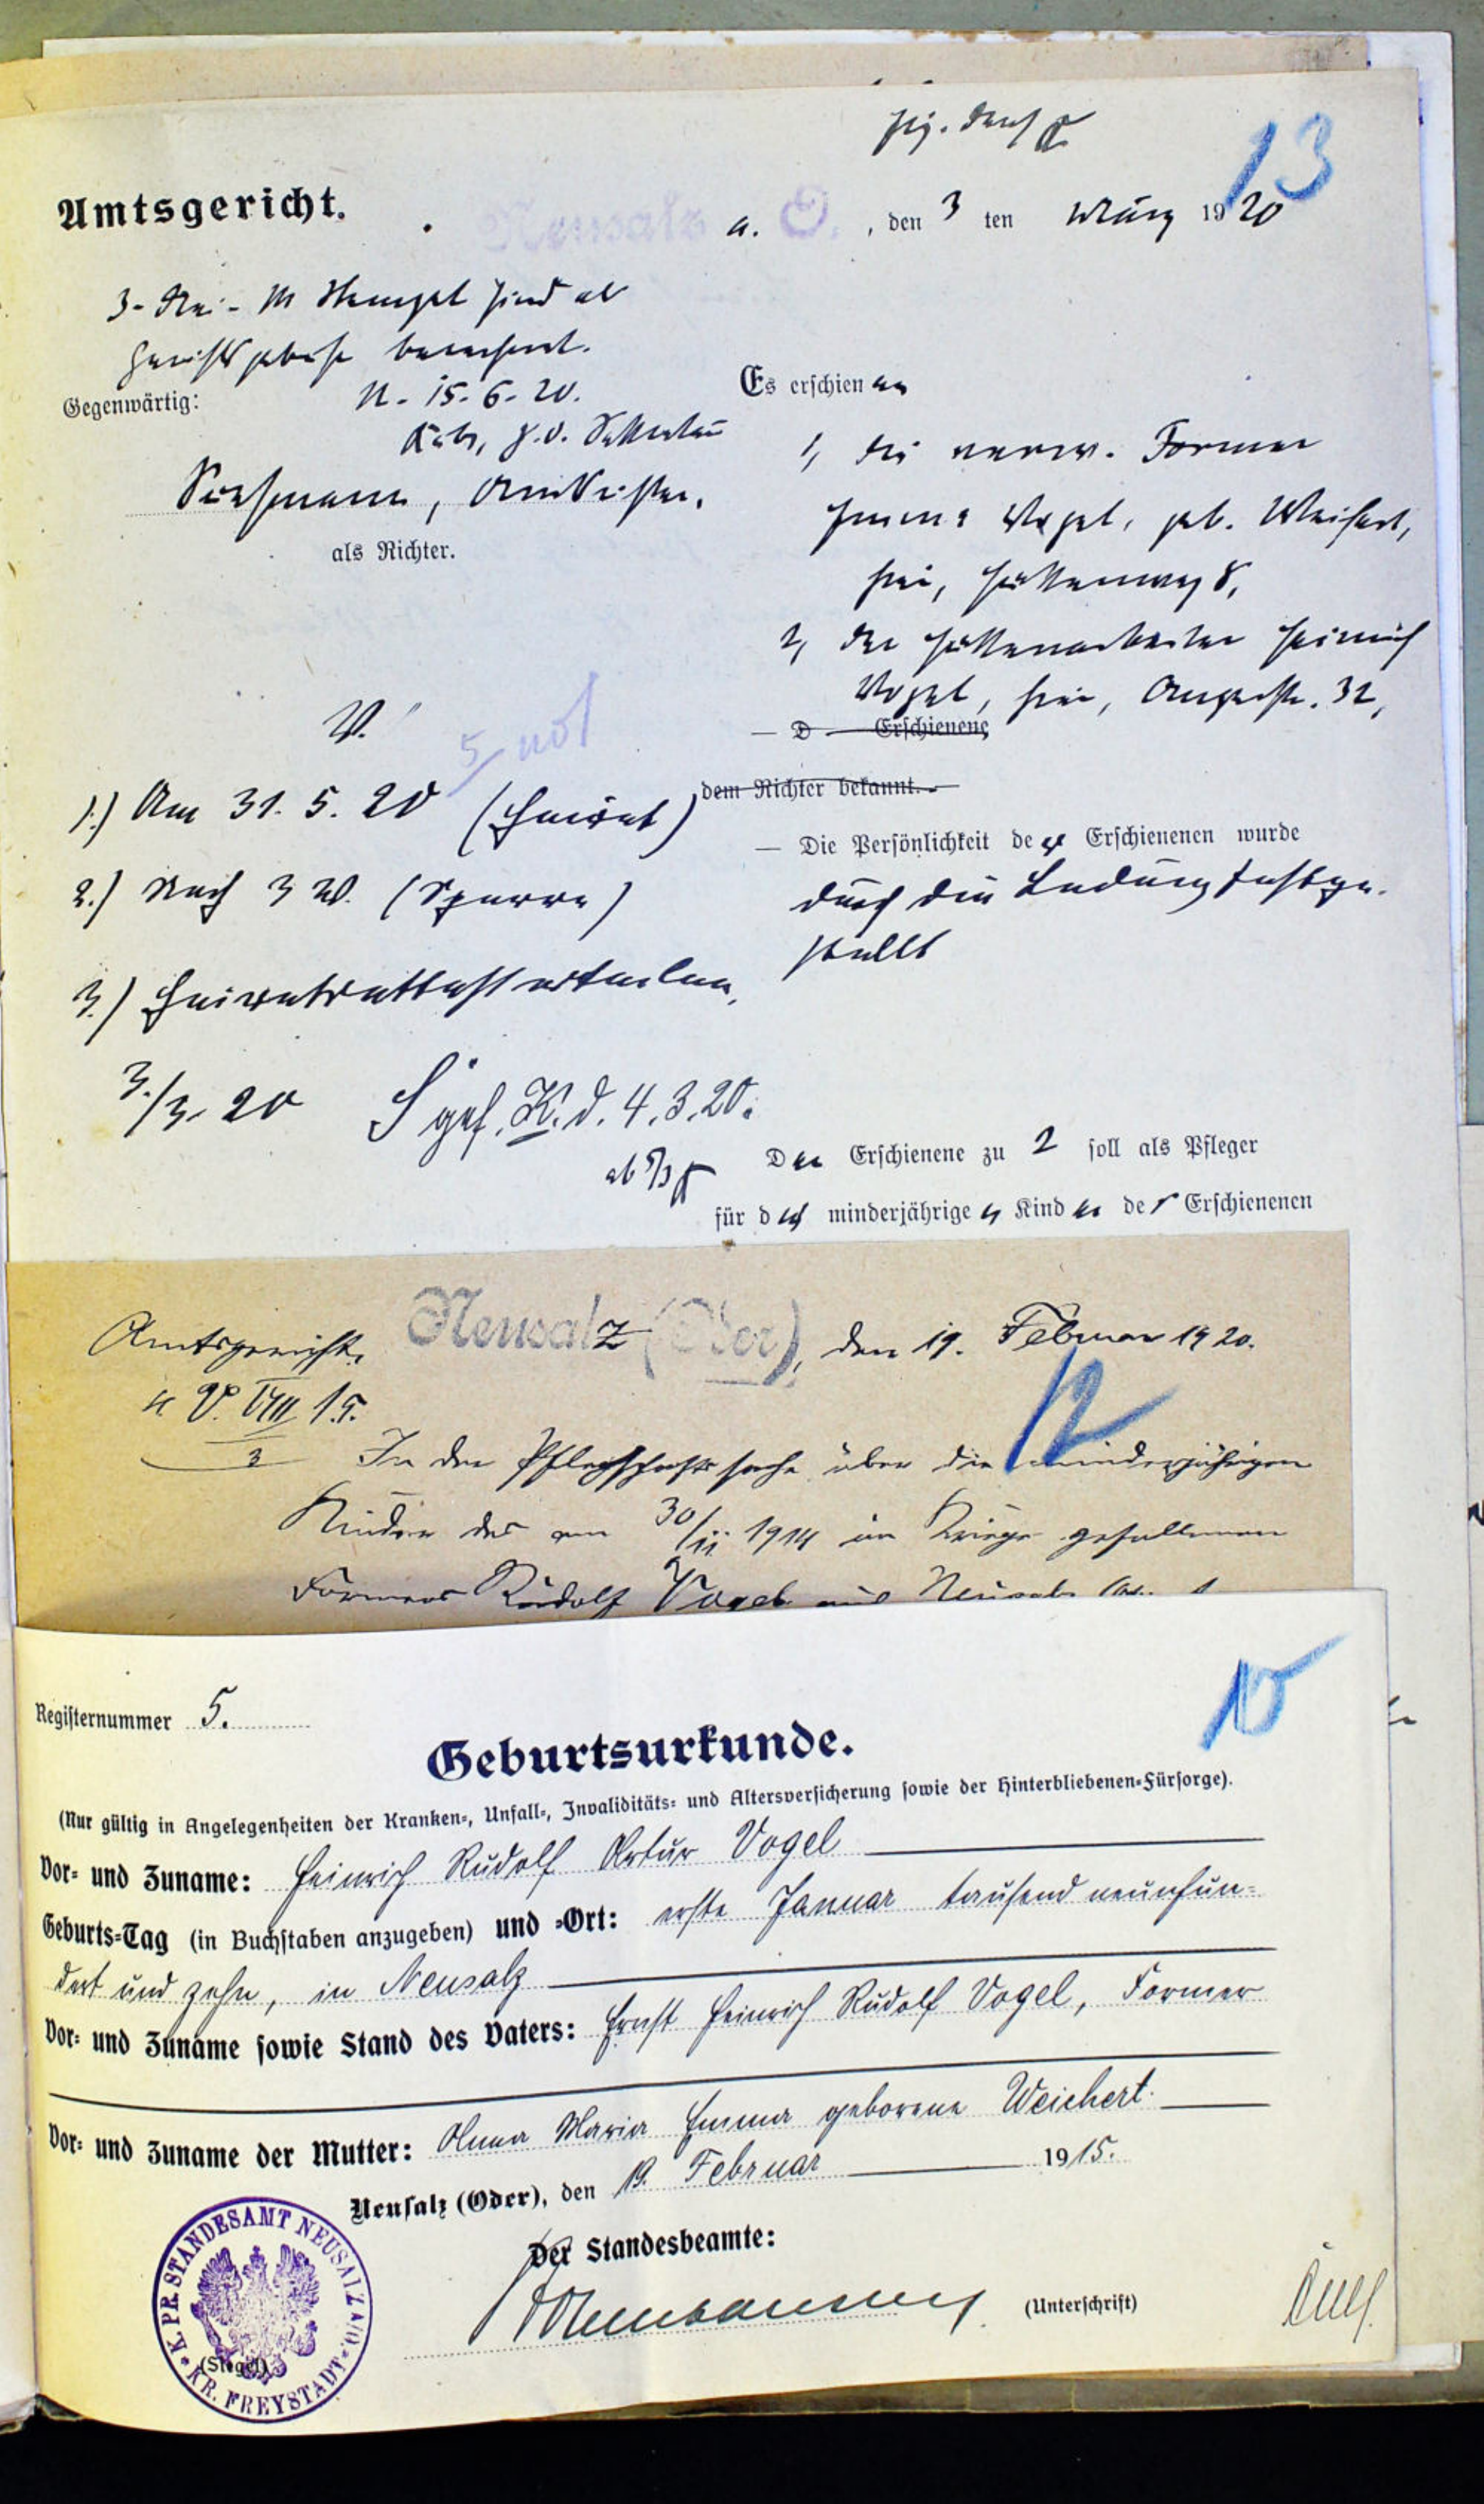 13
Amtsgericht.
Neusalz a. O., den 3 ten März 1920
3 M Stempel sind als
berechnet.
Gegenwärtig:
N. 15.6.20.
als Richter.
Es erschienen
1, die verw. Former
Emma Vogel, geb. Weichert,
hier, Hüttenweg 8,
2, der Hüttenarbeiter Heinrich
Vogel, hier, Augustastr. 32,
— D — Erschienene
dem Richter bekannt. —
— Die Persönlichkeit der Erschienenen wurde
durch die Ladung festge-
stellt
V.
5 not
1.) Am 31. 5. 20 (Heirat)
2.) Nach 3 W. (Sperre)
3.) Heiratsattest erteilen.
3./3. 20 gef. K. d. 4.3.20.
ab 5/3
Der Erschienene zu 2 soll als Pfleger
für die minderjährigen Kinder der Erschienenen
Amtsgericht. Neusalz (Oder), den 19. Februar 1920.
V. VIII 15.
3
12
In der Pflegschaftssache über die minderjährigen
Kinder des am 30/11 1914 im Kriege gefallenen
Formers Rudolf Vogel aus Neusalz
10
Registernummer 5.
Geburtsurkunde.
(Nur gültig in Angelegenheiten der Kranken-, Unfall-, Invaliditäts- und Altersversicherung sowie der Hinterbliebenen-Fürsorge).
Vor- und Zuname: Heinrich Rudolf Artur Vogel
Geburts-Tag (in Buchstaben anzugeben) und -Ort: erste Januar tausend neunhun-
dert und zehn, in Neusalz
Vor- und Zuname sowie Stand des Vaters: Ernst Heinrich Rudolf Vogel, Former
Vor- und Zuname der Mutter: Anna Maria Emma geborene Weichert.
Neusalz (Oder), den 19. Februar 1915.
Der Standesbeamte:
(Unterschrift)
K. PR. STANDESAMT NEUSALZ A/O.
KR. FREYSTADT
(Siegel)